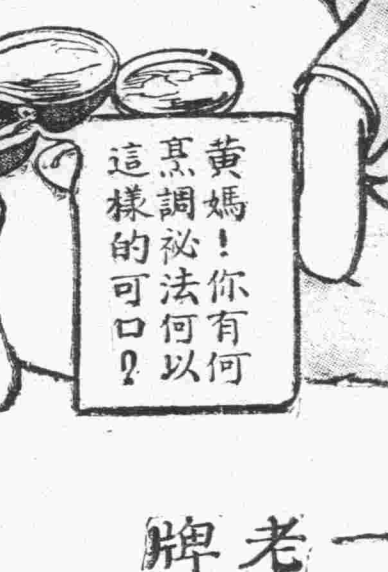 黃媽！你有何
烹調祕法何以
這樣的可口？
一老牌